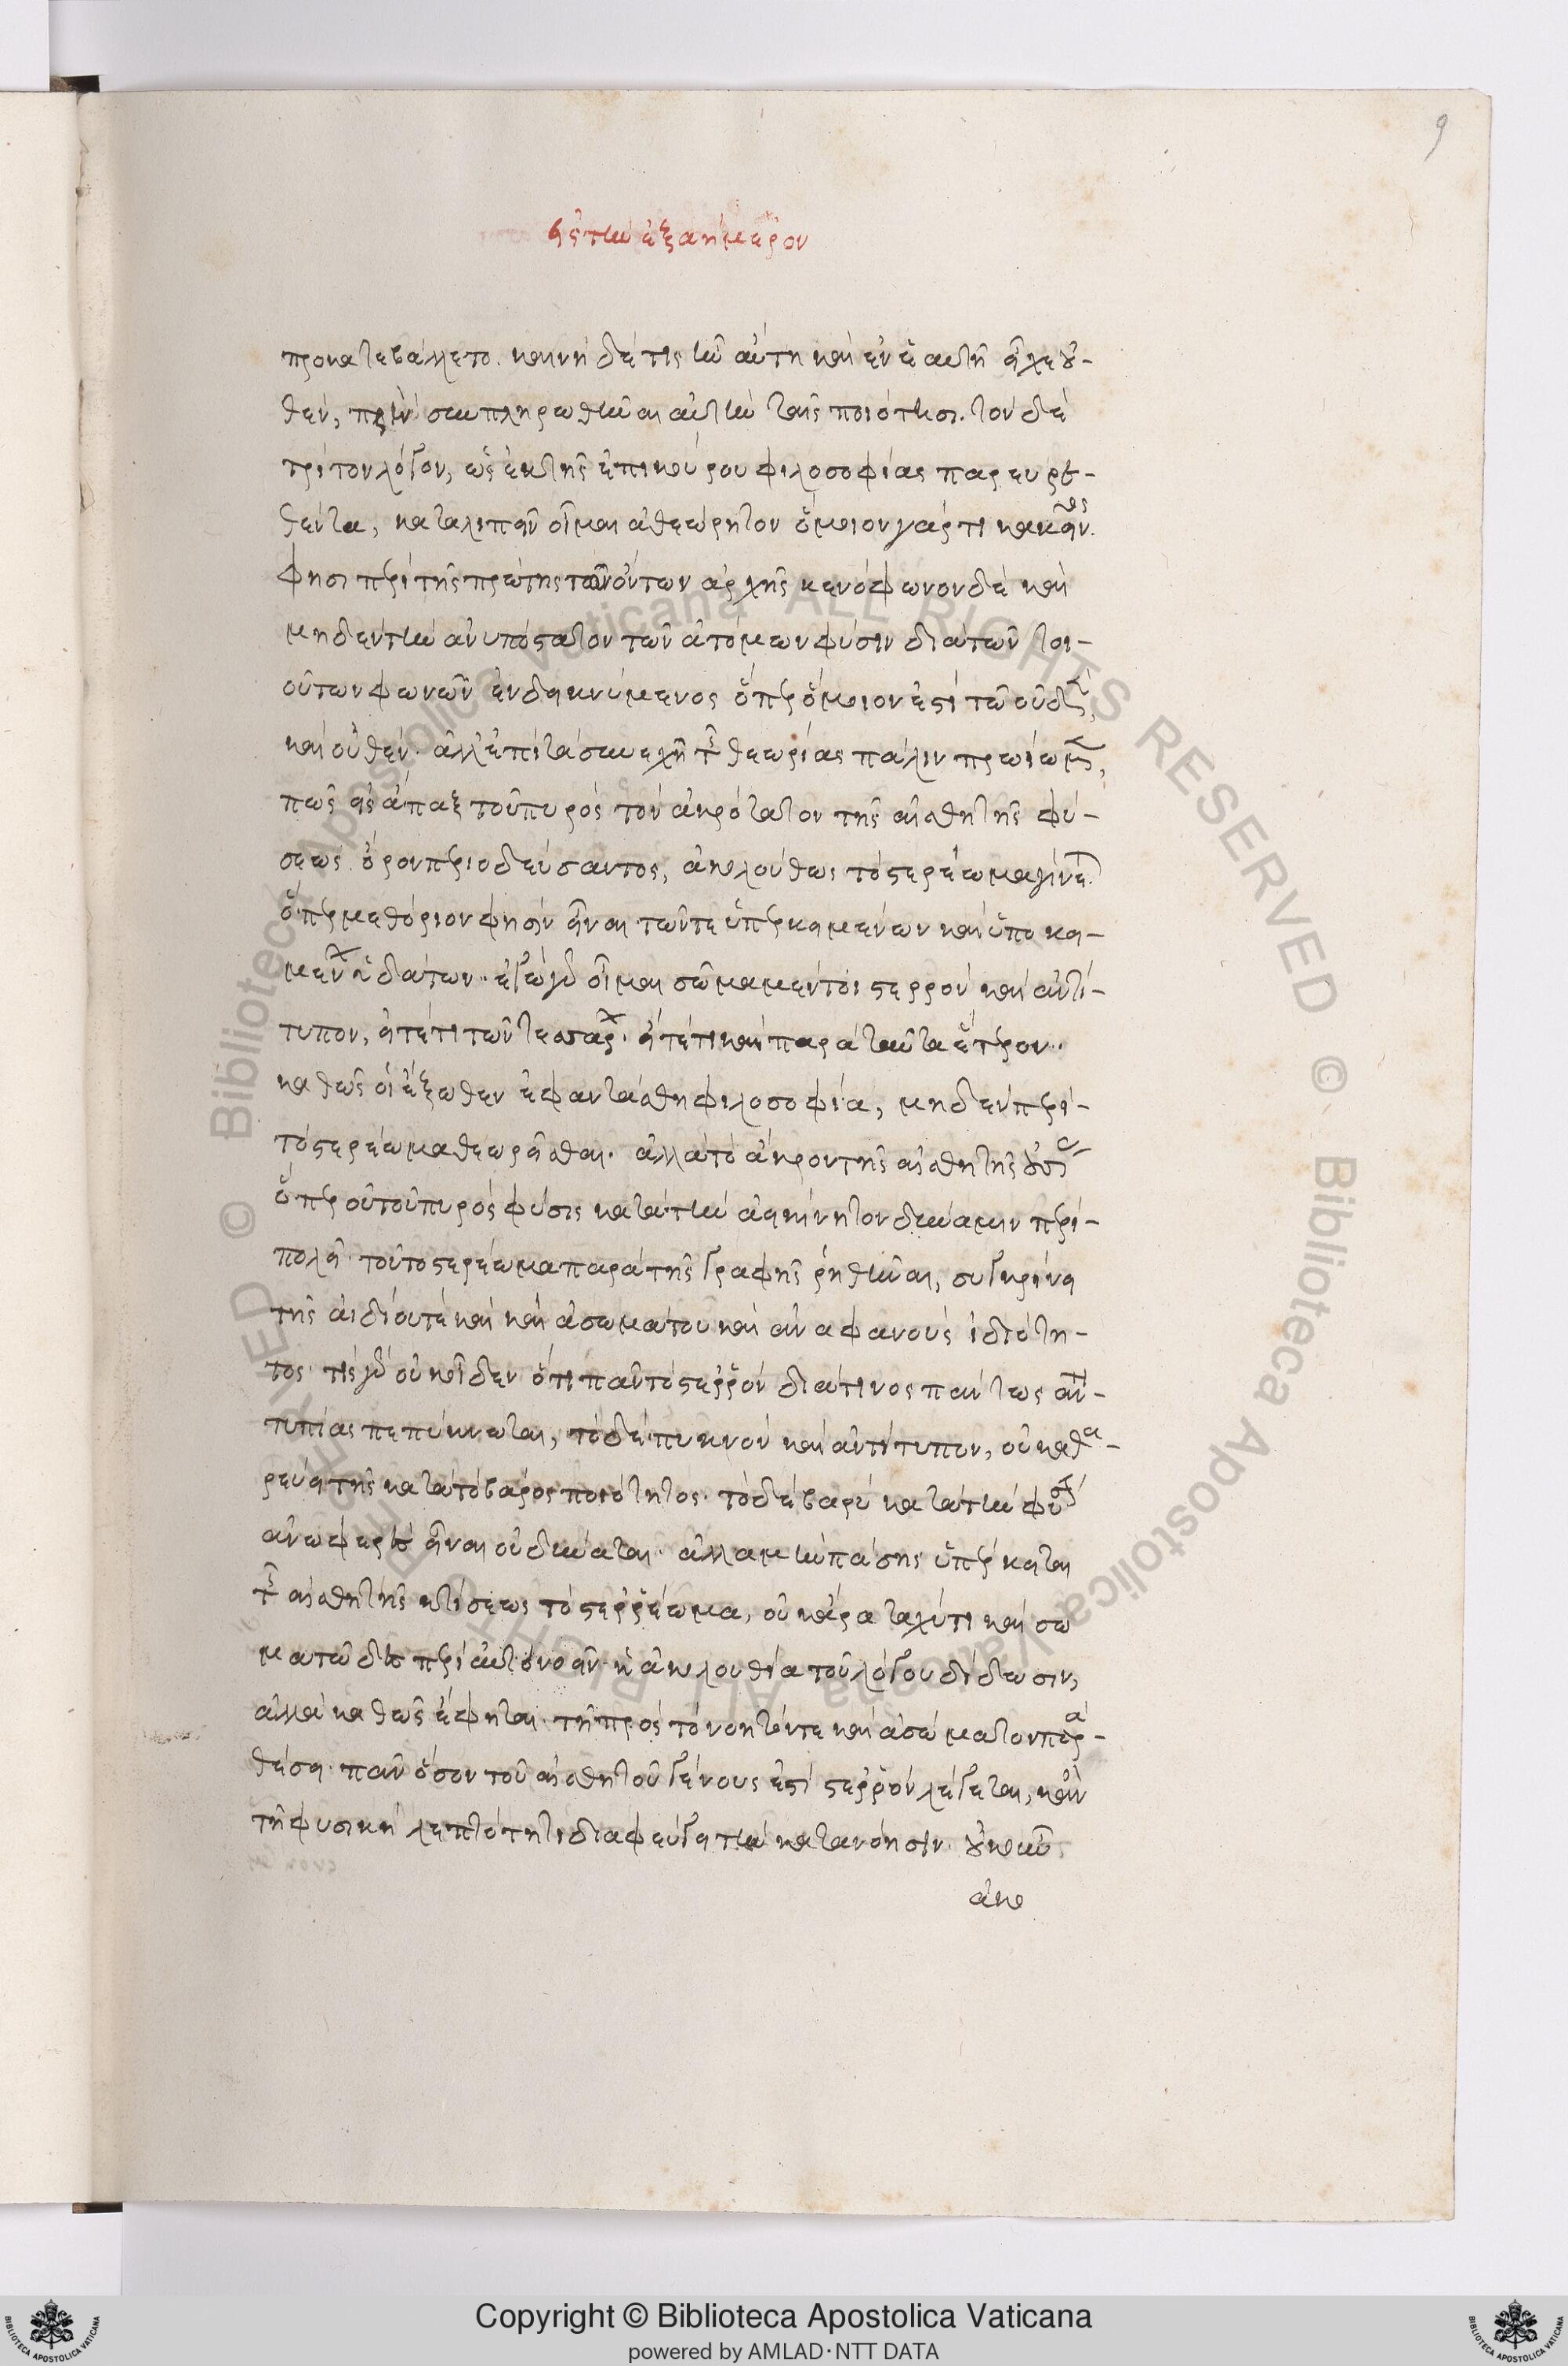 9
εἰς τὴν ἑξαήμερον
προκατεβάλλετο. κοινὴ δέ τις ἦν αὕτη καὶ ἐν ἑαυτῇ εἶχε οὐ-
θέν, πρὶν συμπληρωθῆναι αὐτὴν ταῖς ποιότησι. τὸν δὲ
τρίτον λόγον, ὡς ἐκ τῆς ἐπικούρου φιλοσοφίας παρευρε-
θέντα, καταλιπεῖν οἶμαι ἀθεώρητον ὅμοιον γάρ τι κἀκεῖνος
φησι περὶ τῆς πρώτης τῶν ὄντων ἀρχῆς κενόφωνον δὲ καὶ
μηδὲν τὴν ἀνυπόστατον τῶν ἀτόμων φύσιν διὰ τῶν τοι-
ούτων φωνῶν ἐνδεικνύμενος ὅπερ ὅμοιόν ἐστι τῷ οὐδὲν,
καὶ οὐθέν. ἀλλ' ἐπὶ τὰ συνεχῆ τῆς θεωρίας πάλιν προΐωμεν,
πῶς εἰς ἅπαξ τοῦ πυρὸς τὸν ἀκρότατον τῆς αἰσθητῆς φύ-
σεως ὅρον περιοδεύσαντος, ἀκολούθως τὸ στερέωμα γίνεται.
ὅπερ μεθόριον φησὶν εἶναι τῶν τε ὑπερκειμένων καὶ ὑποκει-
μένων ὑδάτων. ἐγὼ γὰρ οἶμαι σῶμα μέντοι στερρὸν καὶ ἀντί-
τυπον, εἴτέ τι τῶν τεσσάρων. εἴτέ τι καὶ παρὰ ταῦτα ἕτερον.
καθὼς οἱ ἔξωθεν ἐφαντάσθη φιλοσοφία, μηδὲν περὶ
τὸ στερέωμα θεωρεῖσθαι. ἀλλὰ τὸ ἄκρον τῆς αἰσθητῆς οὐσίας
ὅπερ οὗ τοῦ πυρὸς φύσις κατὰ τὴν ἀεικίνητον δύναμιν περι-
πολεῖ. τοῦτο στερέωμα παρὰ τῆς γραφῆς ῥηθῆναι, συγκρίνει
τῆς ἀϊδίου τὲ καὶ καὶ ἀσωμάτου καὶ ἀναφανοῦς ἰδιότη-
τος. τίς γὰρ οὐκ οἶδεν ὅτι πᾶν τὸ στερρὸν διά τινος πάντως ἀντι-
τυπίας πεπύκνωται, τὸ δὲ πυκνὸν καὶ ἀντίτυπον, οὐ καθα-
ρεύει τῆς κατὰ τὸ βάρος ποιότητος. τὸ δὲ βαρὺ κατὰ τὴν φύσιν
ἀνωφερὲς εἶναι οὐ δύναται. ἀλλα μὴν πάσης ὑπέρκειται
τῆς αἰσθητῆς κτίσεως τὸ στερρέωμα, οὐκ ἄρα παχύ τι καὶ σω
ματῶδες περὶ αὐτὸ νοεῖν. ἡ ἀκολουθία τοῦ λόγου δίδωσιν,
ἀλλὰ καθὼς ἔφηται. τῇ πρὸς τὸ νοητόν τε καὶ ἀσώματον παρα-
θέσει. πᾶν ὅσον τοῦ αἰσθητοῦ γένους ἐστὶ στερρὸν λέγεται, κἂν
τῇ φυσικῇ λεπτότητι διαφεύγει τὴν κατανόησιν. οὐκοῦν
ἀκο
Copyright © Biblioteca Apostolica Vaticana
powered by AMLAD·NTT DATA